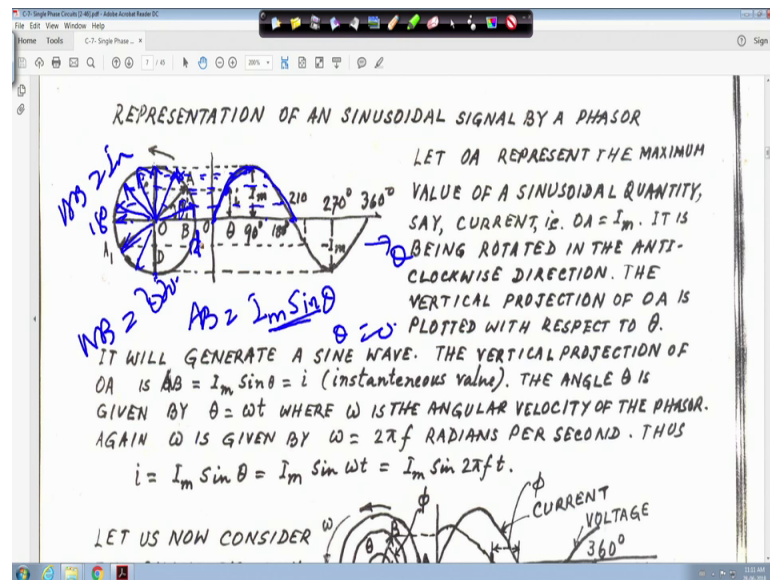 C-7- Single Phase Circuits [2-46].pdf - Adobe Acrobat Reader DC
File Edit View Window Help
Home Tools C-7- Single Phase ... × Sign
7 / 45 200%
REPRESENTATION OF AN SINUSOIDAL SIGNAL BY A PHASOR
LET OA REPRESENT THE MAXIMUM
VALUE OF A SINUSOIDAL QUANTITY,
SAY, CURRENT, i.e. OA = Im. IT IS
BEING ROTATED IN THE ANTI-
CLOCKWISE DIRECTION. THE
VERTICAL PROJECTION OF OA IS
PLOTTED WITH RESPECT TO θ.
A
Im
210 270° 360°
180
O B O θ 90° 180°
A1
D
-Im
→ θ
AB = Im
AB = Im Sinθ
θ = 0
IT WILL GENERATE A SINE WAVE. THE VERTICAL PROJECTION OF
OA IS AB = Im Sinθ = i (instanteneous value). THE ANGLE θ IS
GIVEN BY θ = ωt WHERE ω IS THE ANGULAR VELOCITY OF THE PHASOR.
AGAIN ω IS GIVEN BY ω = 2πf RADIANS PER SECOND. THUS
i = Im Sin θ = Im Sin ωt = Im Sin 2πft.
LET US NOW CONSIDER
ω
θ
ϕ
ϕ
CURRENT
VOLTAGE
360°
11:11 AM